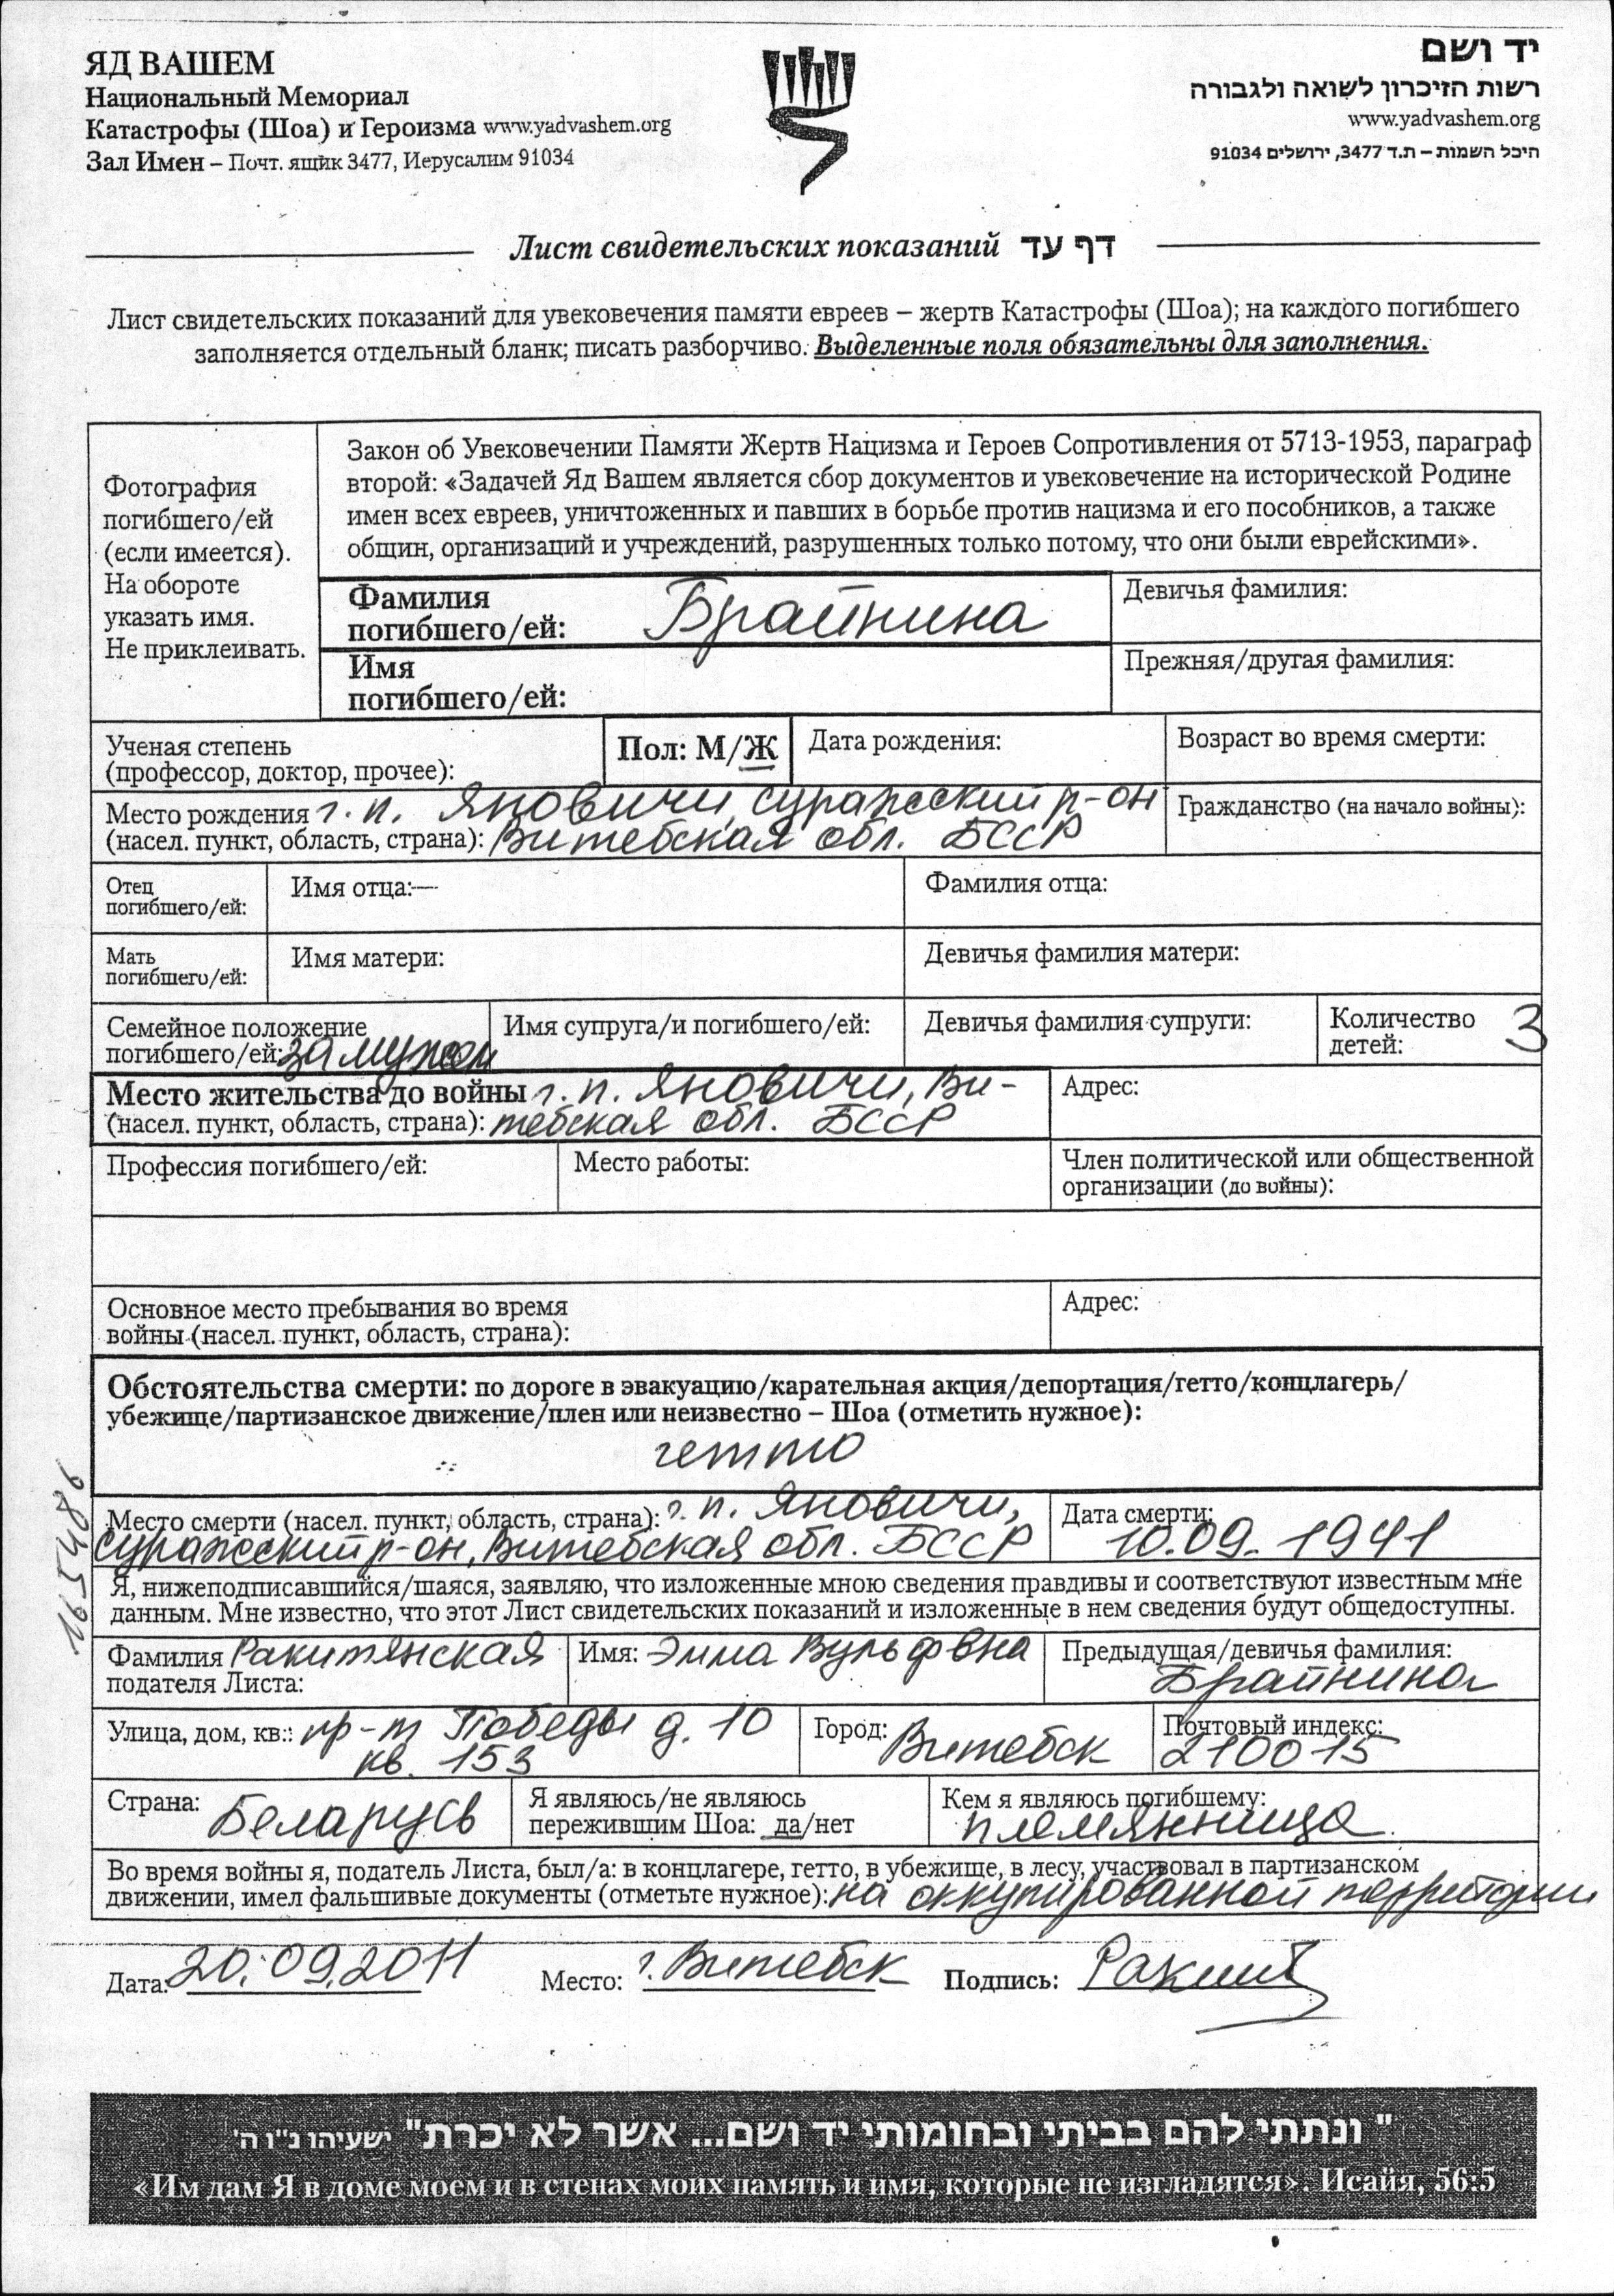 ЯД ВАШЕМ
Национальный Мемориал
Катастрофы (Шоа) и Героизма www.yadvashem.org
Зал Имен – Почт. ящик 3477, Иерусалим 91034
יד ושם
רשות הזיכרון לשואה ולגבורה
www.yadvashem.org
היכל השמות – ת.ד 3477, ירושלים 91034
Лист свидетельских показаний דף עד
Лист свидетельских показаний для увековечения памяти евреев – жертв Катастрофы (Шоа); на каждого погибшего
заполняется отдельный бланк; писать разборчиво. Выделенные поля обязательны для заполнения.
Фотография
погибшего/ей
(если имеется).
На обороте
указать имя.
Не приклеивать.
Закон об Увековечении Памяти Жертв Нацизма и Героев Сопротивления от 5713-1953, параграф
второй: «Задачей Яд Вашем является сбор документов и увековечение на исторической Родине
имен всех евреев, уничтоженных и павших в борьбе против нацизма и его пособников, а также
общин, организаций и учреждений, разрушенных только потому, что они были еврейскими».
Фамилия
погибшего/ей: Брайнина
Девичья фамилия:
Имя
погибшего/ей:
Прежняя/другая фамилия:
Ученая степень
(профессор, доктор, прочее):
Пол: М/Ж
Дата рождения:
Возраст во время смерти:
Место рождения г. п. Яновичи, Суражский р-он
(насел. пункт, область, страна): Витебская обл. БССР
Гражданство (на начало войны):
Отец
погибшего/ей:
Имя отца:—
Фамилия отца:
Мать
погибшего/ей:
Имя матери:
Девичья фамилия матери:
Семейное положение
погибшего/ей: замужем
Имя супруга/и погибшего/ей:
Девичья фамилия супруги:
Количество
детей: 3
Место жительства до войны г. п. Яновичи, Ви-
(насел. пункт, область, страна): тебская обл. БССР
Адрес:
Профессия погибшего/ей:
Место работы:
Член политической или общественной
организации (до войны):
Основное место пребывания во время
войны (насел. пункт, область, страна):
Адрес:
Обстоятельства смерти: по дороге в эвакуацию/карательная акция/депортация/гетто/концлагерь/
убежище/партизанское движение/плен или неизвестно – Шоа (отметить нужное):
гетто
Место смерти (насел. пункт, область, страна): г. п. Яновичи,
Суражский р-он, Витебская обл. БССР
Дата смерти:
10.09.1941
165486
Я, нижеподписавшийся/шаяся, заявляю, что изложенные мною сведения правдивы и соответствуют известным мне
данным. Мне известно, что этот Лист свидетельских показаний и изложенные в нем сведения будут общедоступны.
Фамилия Ракитянская
подателя Листа:
Имя: Эмма Вульфовна
Предыдущая/девичья фамилия:
Брайнина
Улица, дом, кв.: пр-т Победы д. 10
кв. 153
Город: Витебск
Почтовый индекс:
210015
Страна: Беларусь
Я являюсь/не являюсь
пережившим Шоа: да/нет
Кем я являюсь погибшему:
племянница
Во время войны я, податель Листа, был/а: в концлагере, гетто, в убежище, в лесу, участвовал в партизанском
движении, имел фальшивые документы (отметьте нужное): на оккупированной территории
Дата: 20.09.2011 Место: г. Витебск Подпись: Ракит
"ונתתי להם בביתי ובחומותי יד ושם... אשר לא יכרת" ישעיהו נ"ו ה'
«Им дам Я в доме моем и в стенах моих память и имя, которые не изгладятся». Исайя, 56:5